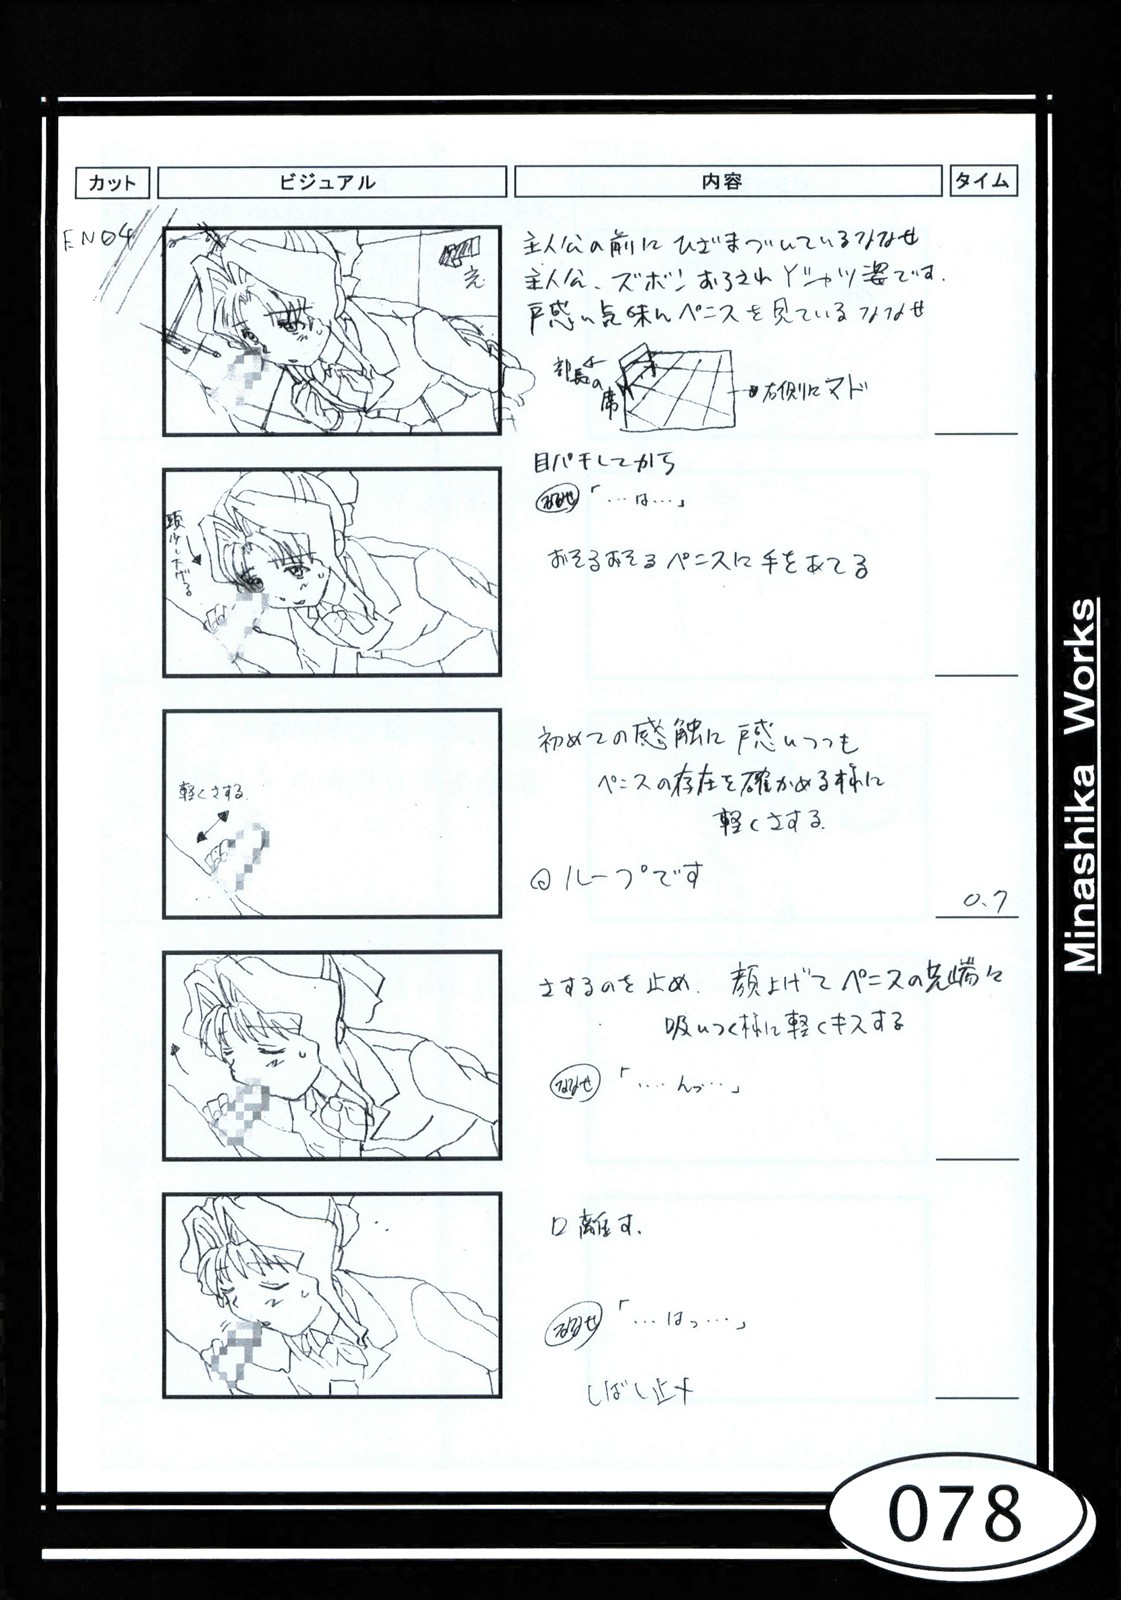 カット
ビジュアル
内容
タイム
EN04
主人公の前に ひざまづいているななせ
主人公、ズボンおろされYシャツ姿です.
戸惑い気味にペニスを見ているななせ
部長の席
右側にマド
目パチしてから
ななせ 「…は…」
頭少し下げる
おそるおそるペニスに手をあてる
初めての感触に戸惑いつつも
ペニスの存在を確かめる様に
軽くさする.
軽くさする
ループです
0.7
さするのを止め. 顔上げてペニスの先端に
吸いつく様に軽くキスする
ななせ 「‥‥んっ‥‥」
口離す.
ななせ 「…はっ…」
しばし止メ
Minashika Works
078